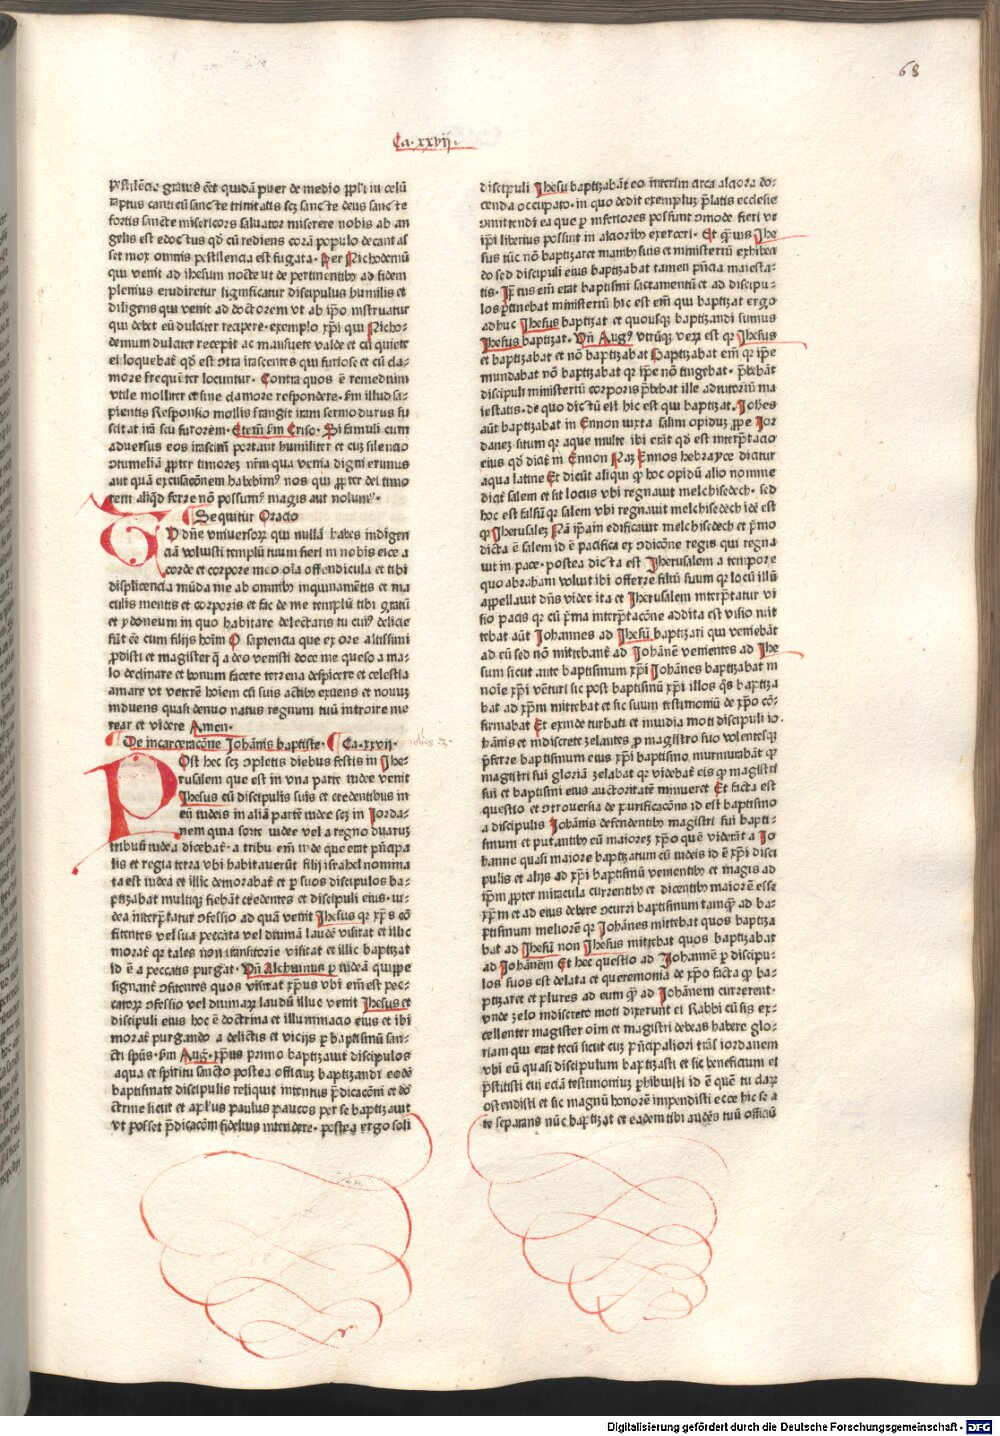 68
Ca.xxvij.
pestilēcia grauis cēt quidā puer de medio ppli in celū
raptus canticū sancte trinitatis scz sancte deus sancte
fortis sancte misericors saluator miserere nobis ab an
gelis est edoctus qd cū rediens corā populo decantas
set mox omnis pestilencia est fugata. Per Nichodemū
qui venit ad ihesum nocte ut de pertinentibꝫ ad fidem
plenius erudiretur significatur discipulus humilis et
diligens qui venit ad doctorem vt ab ipo instruatur
qui debet eū dulciter recipere. exemplo xpi qui Nicho⸗
demum dulciter recepit ac mansuete valde et cū quiete
ei loquebat qd est ꝯtra irascentes qui furiose et cū cla⸗
more frequēter locuntur. Contra quos ē remedium
vtile molliter et sine clamore respondere. scdm illud sa⸗
pientis Responsio mollis frangit iram sermo durus su
scitat irā seu furorem. Etem scdm Criso. Si famuli cum
aduersus eos irascimur portant humiliter et cuꝫ silencio
ꝯtumeliā propter timoreꝫ nrm qua venia digni erimus
aut quā excusacōnem habebimꝰ nos qui propter dei timo
rem aliqd ferre nō possumꝰ magis aut nolumꝰ.
Sequitur Oracio
TU dne vniuersoꝝ qui nullā habes indigen
ciā voluisti templū tuum fieri in nobis eice a
corde et corpore meo oīa offendicula et tibi
displicencia mūda me ab omnibꝫ inquinamētis et ma
culis mentis et corporis et fac de me templū tibi gratū
et ydoneum in quo habitare delectaris tu cuiꝰ delicie
sūt ēe cum filijs hoīm O sapiencia que ex ore altissimi
pdisti et magister q̄ a deo venisti doce me queso a ma⸗
lo declinare et bonum facere terrena despicere et celestia
amare vt veterē hoīem cū suis actibꝫ exuens et nouuꝫ
induens quasi denuo natus regnum tuū introire me
rear et videre Amen.
De incarceracōne Johānis baptiste. Ca.xxvij.
POst hec scz ꝯpletis diebus festis in Jhe⸗
rusalem que est in vna parte iudee venit
Jhesus cū discipulis suis et credentibus in
eū iudeis in aliā partē iudee scz in Jorda⸗
nem quia sorte iudee vel a regno duaruꝫ
tribuū iudea dicebat. a tribu em iude que erat pncipa
lis et regia terra vbi habitauerūt filij israhel nomina
ta est iudea et illic demorabat et p suos discipulos ba⸗
ptizabat multiqꝫ fiebāt credentes et discipuli eius. iu⸗
dea interptatur ꝯfessio ad quā venit Jhesus qꝛ xps cō
fitentes vel sua peccata vel diuinā laudē visitat et illic
morat qꝛ tales non transitorie visitat et illic baptizat
id ē a peccatis purgat. Vn Alchuinus p iudeā quippe
signant ꝯfitentes quos visitat xpus vbi em est pec⸗
catoꝝ ꝯfessio vel diuinaꝝ laudū illuc venit Jhesus et
discipuli eius hoc ē doctrina et illuminacio eius et ibi
morat purgando a delictis et vicijs p baptismū san⸗
cti spūs. scdm Aug. xpus primo baptizauit discipulos
aqua et spiritu sancto postea officiuꝫ baptizandi eodē
baptismate discipulis reliquit intentus pdicacōni et do
ctrine sicut et aplus paulus paucos per se baptizauit
vt posset pdicacōm fidelius intendere. postea ergo soli
discipuli Jhesu baptizabāt eo interim circa alciora do⸗
cenda occupato. in quo dedit exempluꝫ platis ecclesie
ꝯmittendi ea que p inferiores possunt ꝯmode fieri vt
ipi liberius possint in alcioribꝫ exerceri. Et quis Jhe
sus tūc nō baptizaret manibꝫ suis et ministeriū exhiben
do sed discipuli eius baptizabat tamen pncia maiesta⸗
tis. Ipius em erat baptismi sacramentū et ad discipu⸗
los ptinebat ministeriū hic est em qui baptizat ergo
adhuc Jhesus baptizat et quousqꝫ baptizandi sumus
Jhesus baptizat. Vn Augꝰ vtrūqꝫ veꝝ est qꝛ Jhesus
et baptizabat et nō baptizabat Baptizabat em qꝛ ipe
mundabat nō baptizabat qꝛ ipe nō tingebat. pbebāt
discipuli ministeriū corporis pbebat ille adiutoriū ma
iestatis. de quo dictū est hic est qui baptizat. Johes
aūt baptizabat in Ennon iuxta salim opiduꝫ ppe Jor
daneꝫ situm qꝛ aque multe ibi erāt qd est interptacio
eius qd dicit in Ennon Naꝫ Ennos hebrayce dicitur
aqua latine Et dicūt aliqui qꝛ hoc opidū alio nomine
dicat salem et sit locus vbi regnauit melchisedech. sed
hoc est falsū qꝛ salem vbi regnauit melchisedech idē est
qꝛ Jherusaleꝫ Nā ipam edificauit melchisedech et pmo
dicta ē salem id ē pacifica ex ꝯdicōne regis qui regna
uit in pace. postea dicta est Jherusalem a tempore
quo abraham voluit ibi offerre filiū suum qꝛ locū illū
appellauit dns videt ita et Jherusalem interptatur vi
sio pacis qꝛ cū pma interptacōne addita est visio mit
tebat aūt Johannes ad Jhesū baptizari qui veniebāt
ad eū sed nō mittebant ad Johānē venientes ad Jhe
sum sicut ante baptismum xpi Johānes baptizabat in
noīe xpi vēturi sic post baptismū xpi illos q̄s baptiza
bat ad xpm mittebat et sic suum testimoniū de xpo cō⸗
firmabat Et exinde turbati et inuidia moti discipuli io.
hānis et indiscrete zelantes p magistro suo volentesqꝫ
pferre baptismum eius xpi baptismo. murmurabāt qꝛ
magistri sui gloriā zelabāt qꝛ videbāt eis qꝛ magistri
sui et baptismi eius auctoritatē minueret Et facta est
questio et ꝯtrouersia de purificacōne id est baptismo
a discipulis Johānis defendentibꝫ magistri sui bapti⸗
smum et putantibꝫ eū maiorem xpo quē viderāt a Jo
hanne quasi maiore baptizatum cū iudeis id ē xpi disci
pulis et alijs ad xpi baptismū venientibꝫ et magis ad
ipm ppter miracula currentibꝫ et dicentibꝫ maiorē esse
xpm et ad eius debere ꝯcurri baptismum tamqꝫ ad ba⸗
ptismum meliorē qꝛ Johānes mittebat quos baptiza
bat ad Jhesū non Jhesus mittebat quos baptizabat
ad Johānem Et hec questio ad Johannē p discipu⸗
los suos est delata et queremonia de xpo facta qꝛ ba⸗
ptizaret et plures ad eum qꝫ ad Johānem currerent.
vnde zelo indiscreto moti dixerunt ei Rabbi cū sis ex⸗
cellenter magister oīm et magistri debeas habere glo⸗
riam qui erat tecū sicut cuꝫ pncipaliori trās iordanem
vbi eū quasi discipulum baptizasti et sic beneficium ei
pstitisti cui eciā testimoniuꝫ phibuisti id ē quē tu claꝝ
ostendisti et sic magnū honorē impendisti ecce hic se a
te separans nūc baptizat et eadem tibi audēs tuū officiū
Digitalisierung gefördert durch die Deutsche Forschungsgemeinschaft - DFG